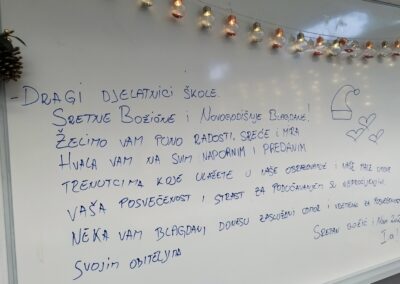 - DRAGI DJELATNICI ŠKOLE.
SRETNE BOŽIĆNE I NOVOGODIŠNJE BLAGDANE!
ŽELIMO VAM PUNO RADOSTI, SREĆE I MIRA
HVALA VAM NA SVIM NAPORNIM I PREDANIM
TRENUTCIMA KOJE ULAŽETE U NAŠE OBRAZOVANJE I NAŠ
VAŠA POSVEĆENOST I STRAST ZA PODUČAVANJEM SU NEPROCJENJIVI.
NEKA VAM BLAGDANI DONESU ZASLUŽENI ODMOR I VRIJEME ZA
SVOJIM OBITELJIMA
SRETAN BOŽIĆ I NOVA
I a!